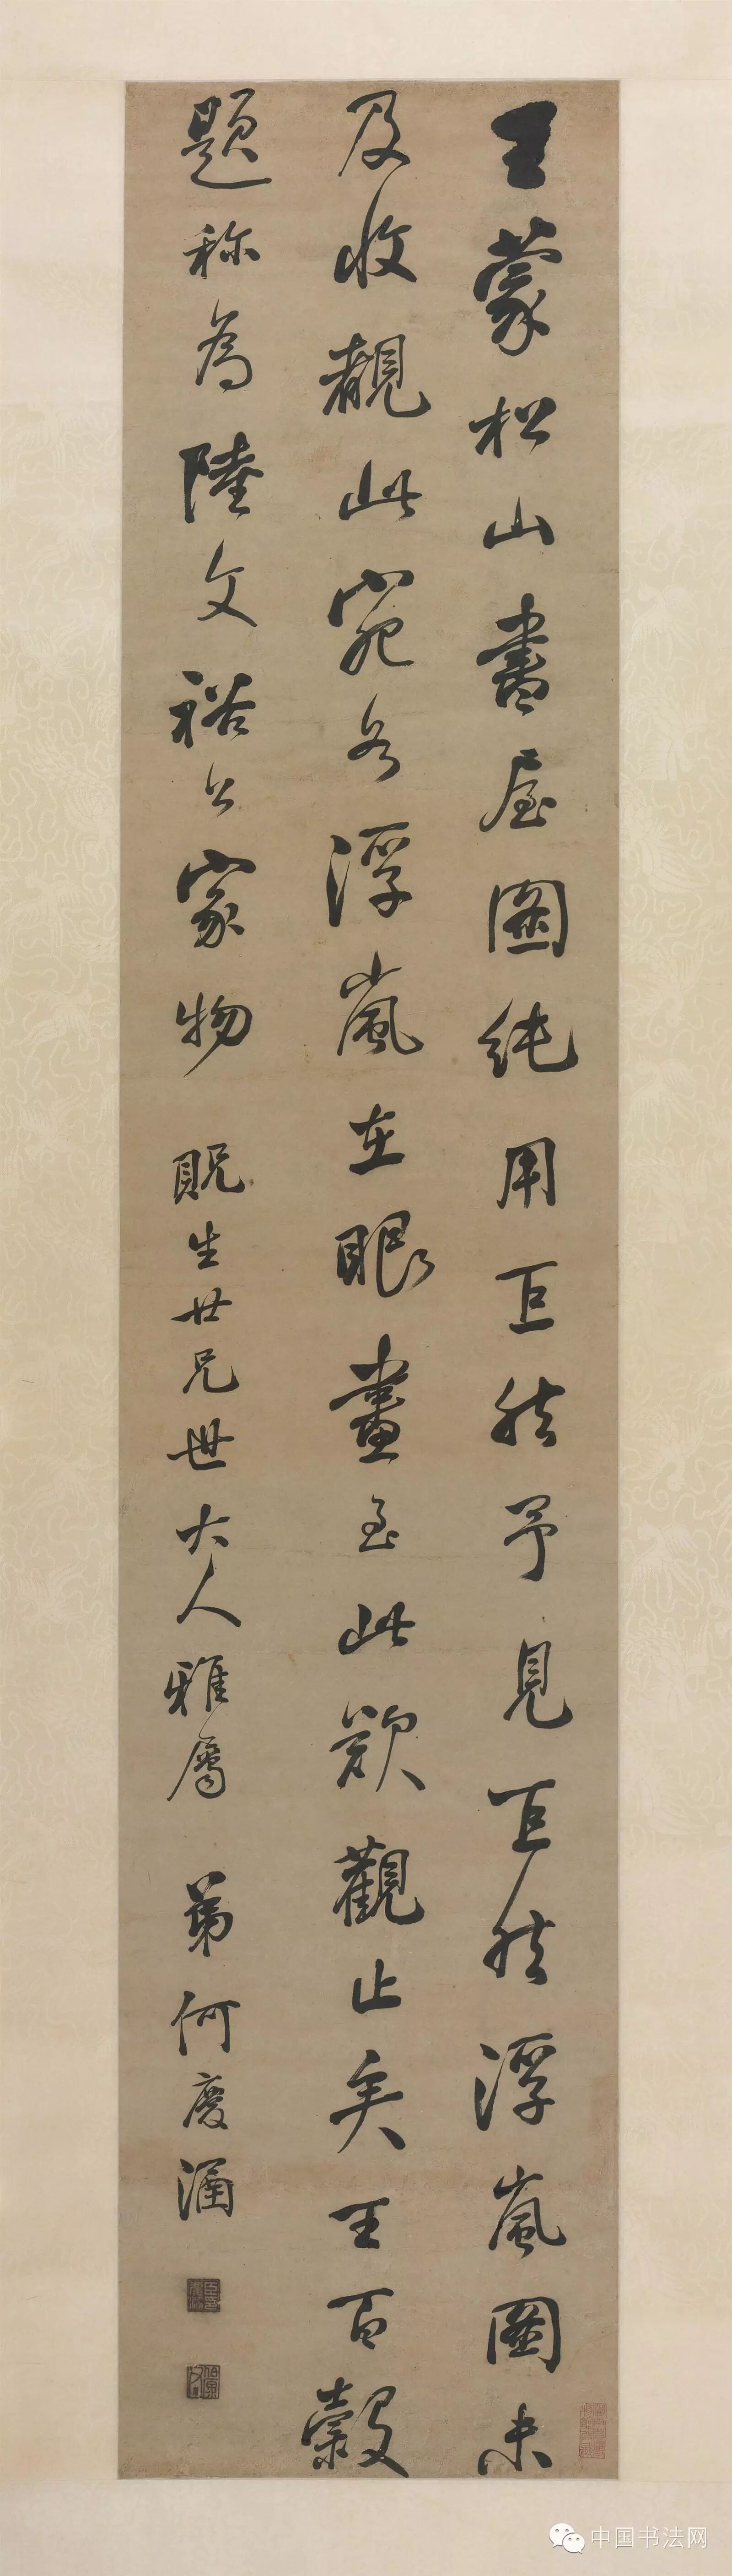 王蒙松山書屋圖純用巨然予見巨然浮嵐圖未
及收覩此宛然浮嵐在眼畫至此欲觀止矣王百穀
題称為陸文裕公家物 貺生廿兄世大人雅屬 弟何慶涵
中国书法网